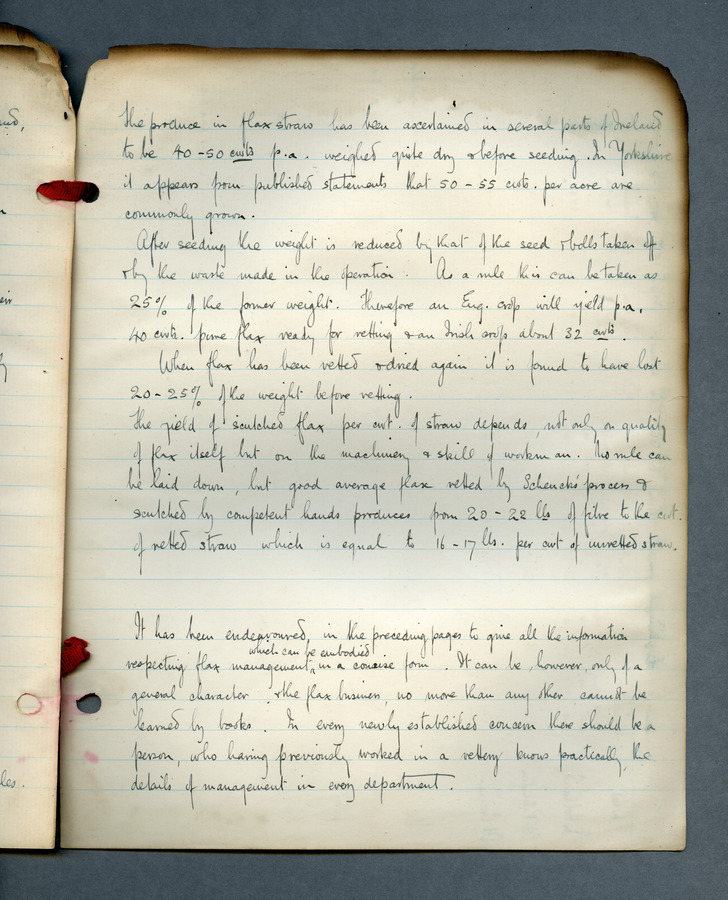 The produce in flax straw has been ascertained in several parts of Ireland
to be 40-50 cwts p.a. weighed quite dry & before seeding. In Yorkshire
it appears from published statements that 50-55 cwts. per acre are
commonly grown.
After seeding the weight is reduced by that of the seed & bolls taken off
& by the waste made in the operation. As a rule this can be taken as
25% of the former weight. Therefore an Eng. crop will yield p.a.
40 cwts. pure flax ready for retting & an Irish crop about 32 cwts.
When flax has been retted & dried again it is found to have lost
20-25% of the weight before retting.
The yield of scutched flax per cwt. of straw depends, not only on quality
of flax itself but on the machinery & skill of workman. No rule can
be laid down, but good average flax retted by Schenck's process &
scutched by competent hands produces from 20-22 lbs of fibre to the cwt.
of retted straw which is equal to 16-17 lbs. per cwt of unretted straw.
It has been endeavoured, in the preceding pages to give all the information
which can be embodied
respecting flax management, in a concise form. It can be, however, only of a
general character & the flax business, no more than any other cannot be
learned by books. In every newly established concern there should be a
person, who having previously worked in a rettery knows practically, the
details of management in every department.
les.